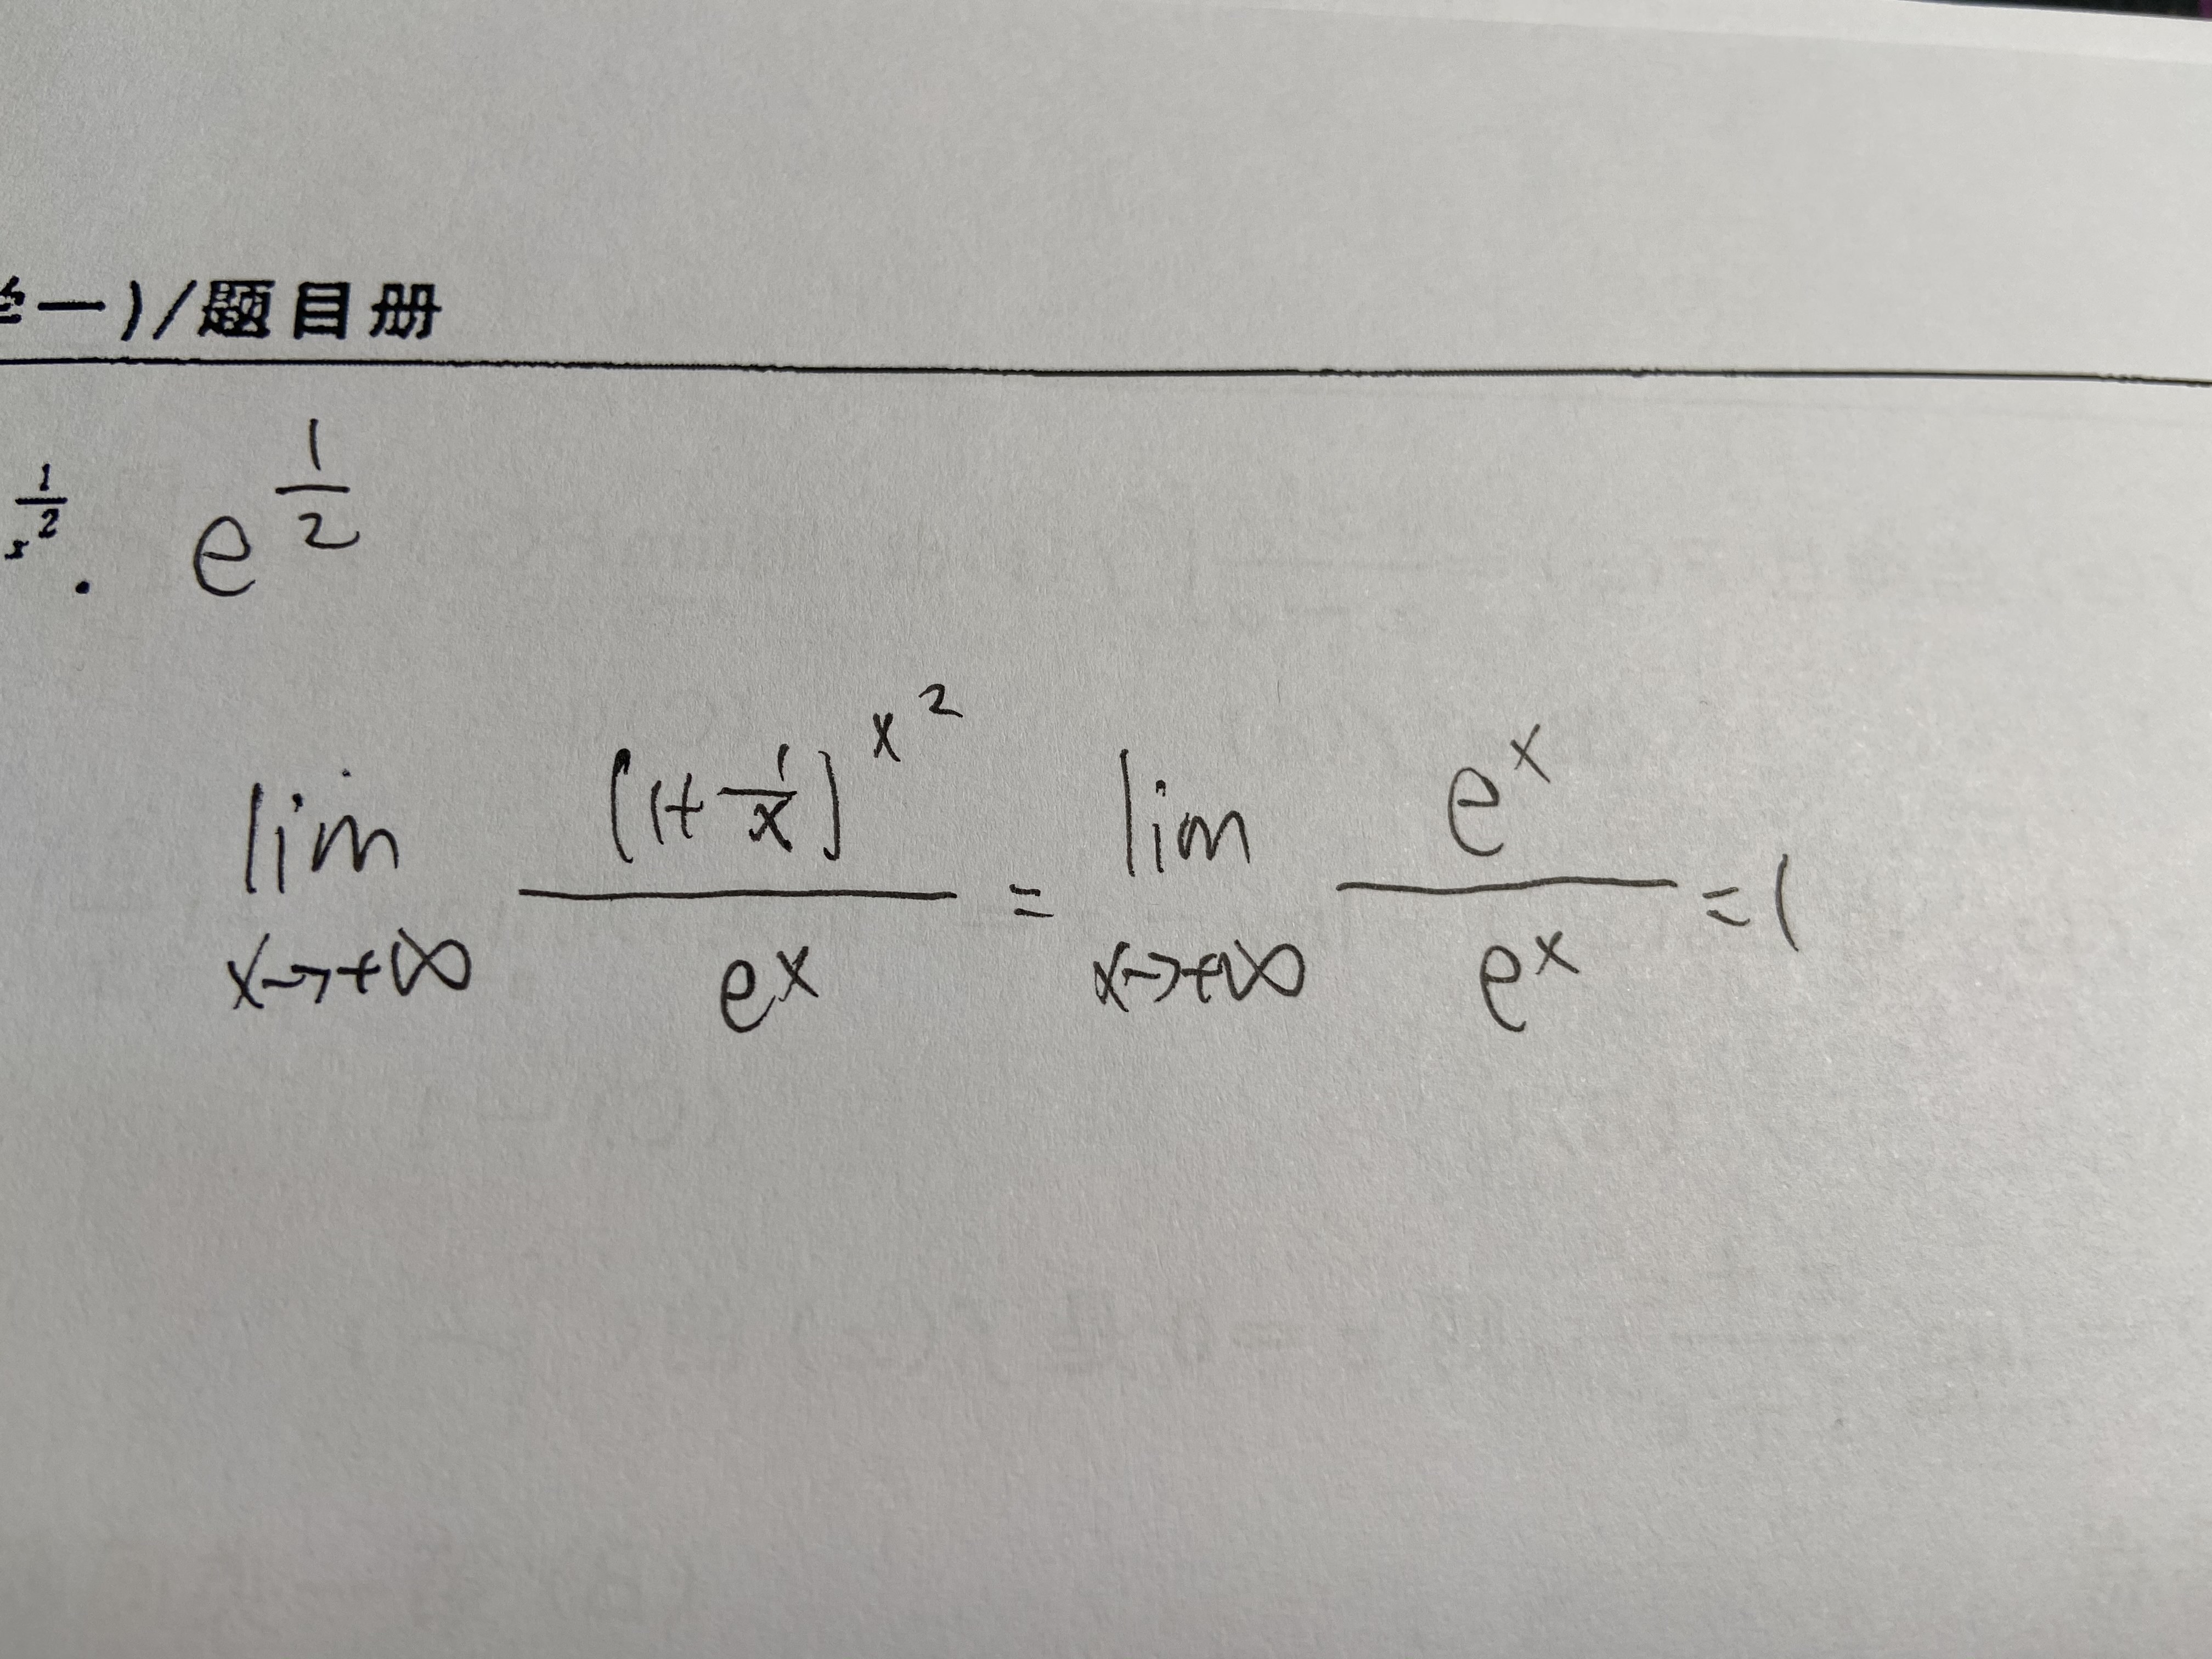 一)/题目册
x^{\frac{1}{2}}. e^{\frac{1}{2}}
\lim_{x \to +\infty} \frac{(1+\frac{1}{x})^{x^2}}{e^x} = \lim_{x \to +\infty} \frac{e^x}{e^x} = 1